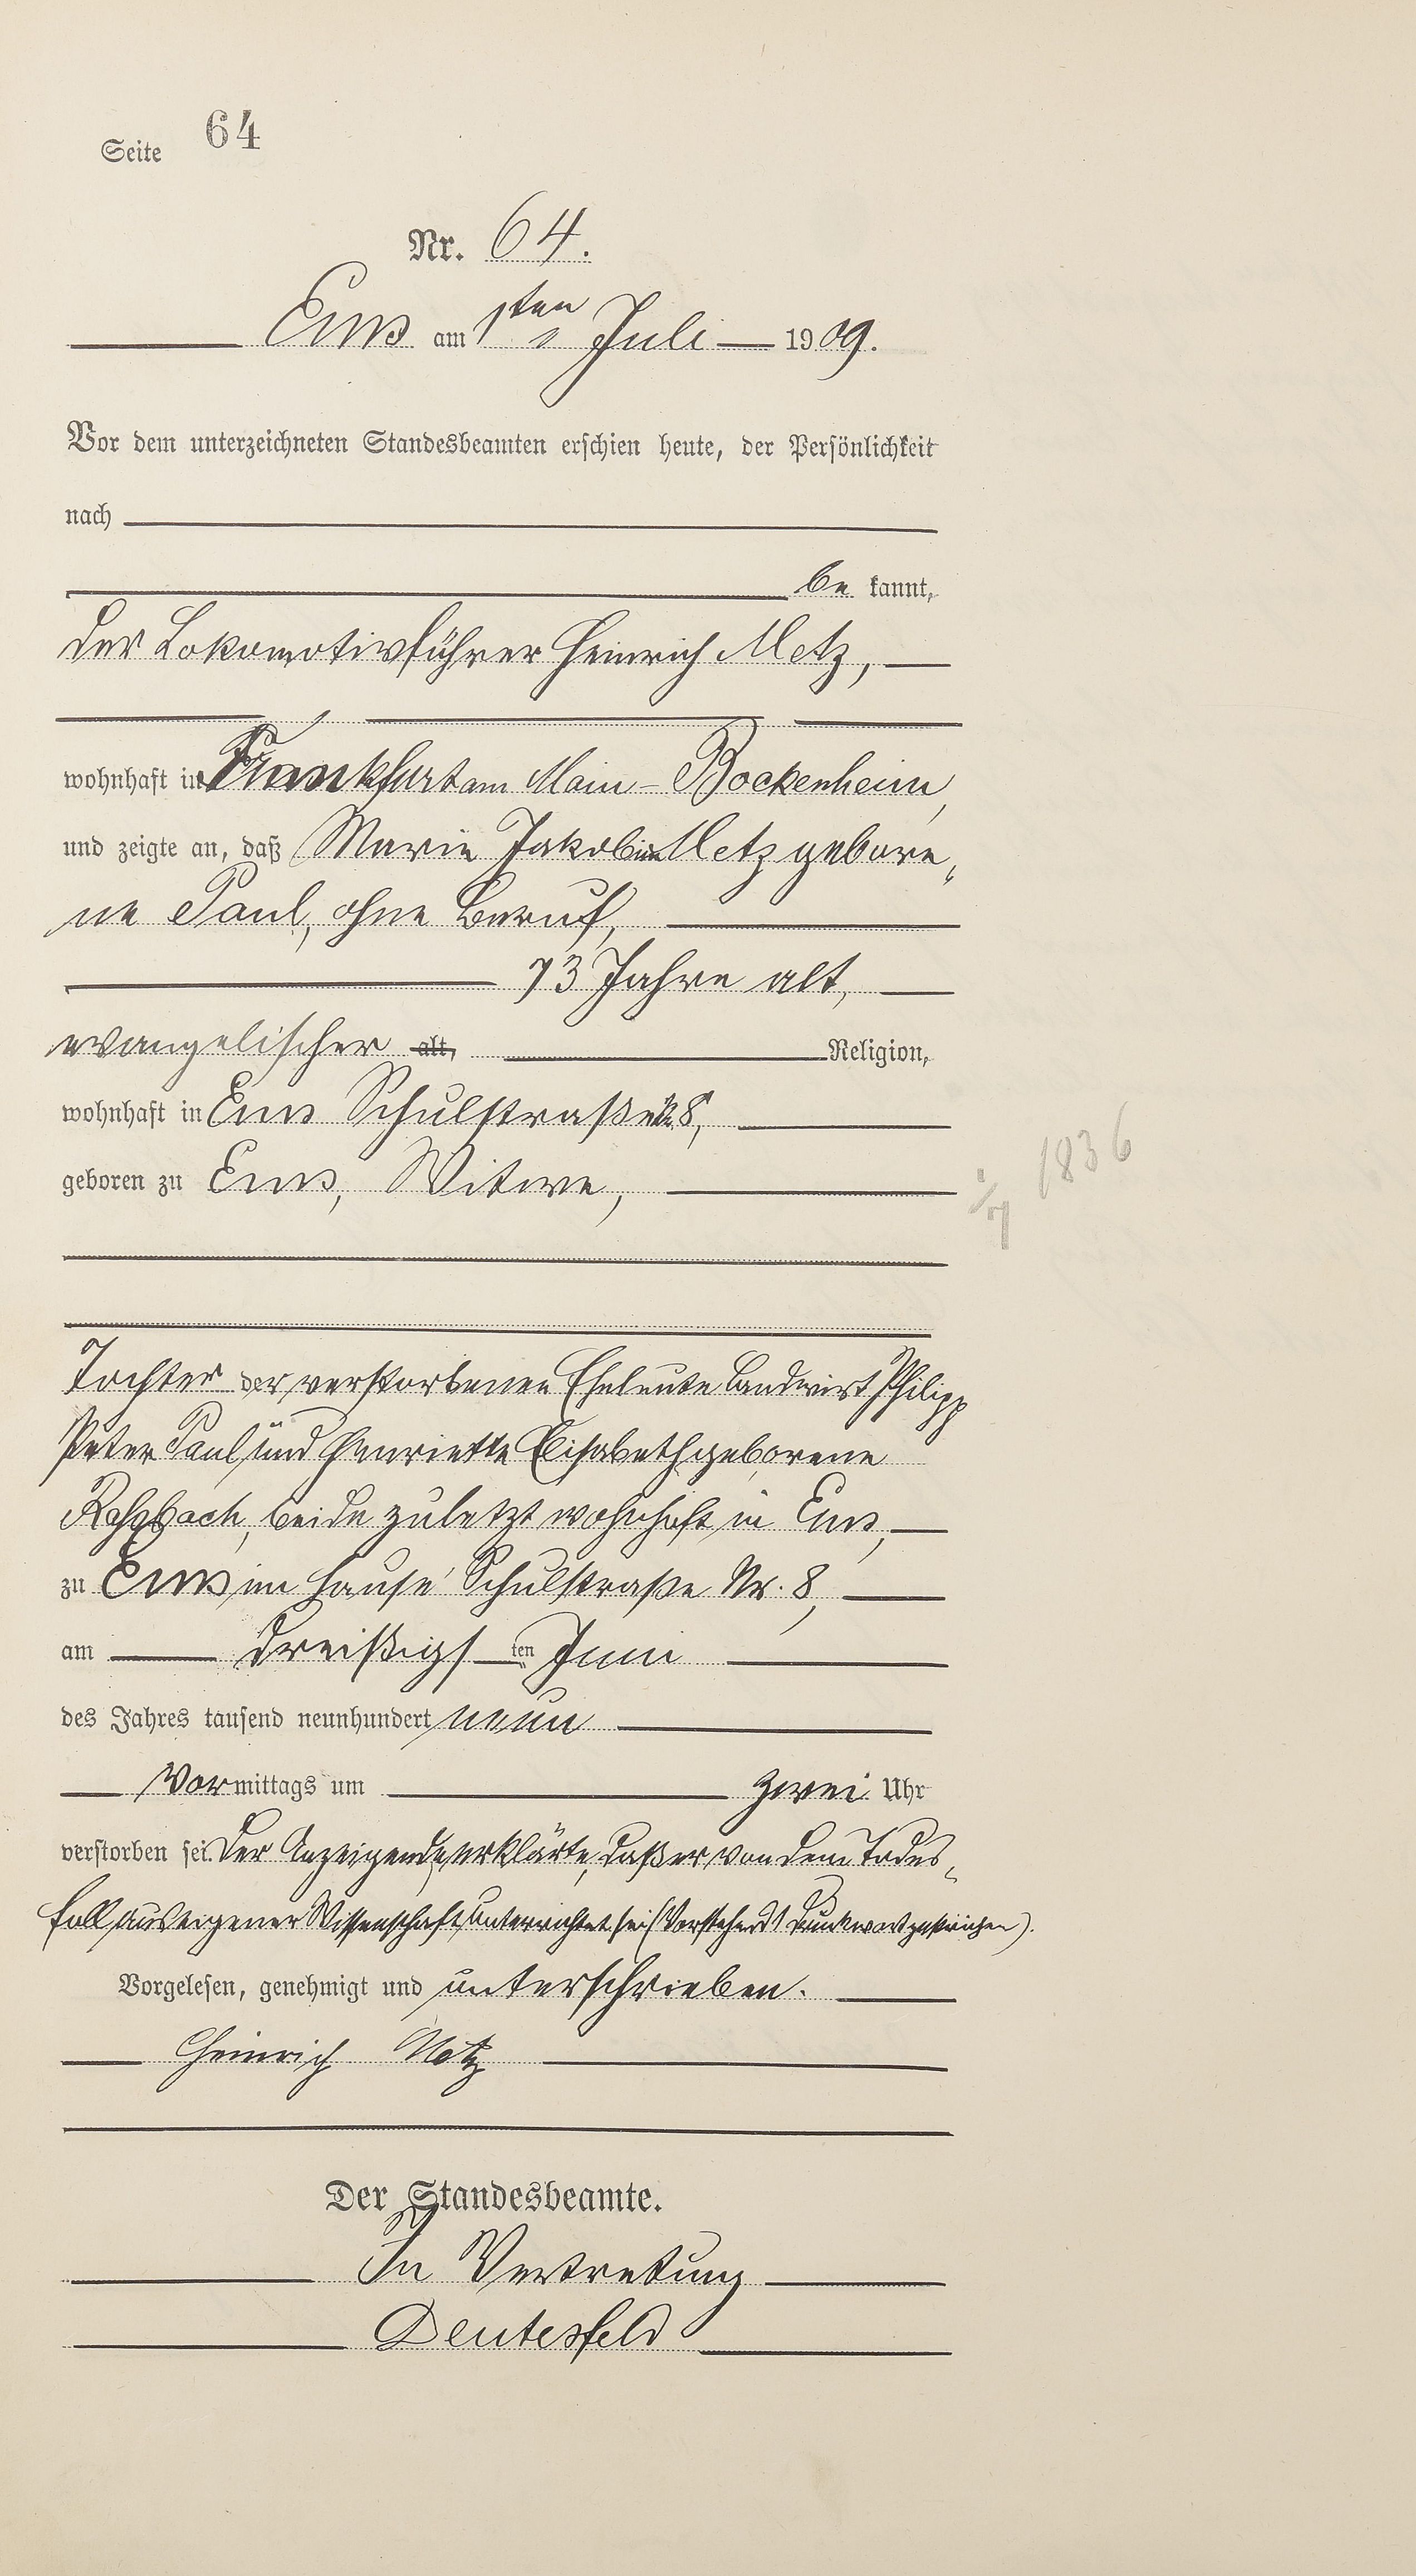 Seite 64
Nr. 64.
Ems am 1ten Juli 1909.
Vor dem unterzeichneten Standesbeamten erschien heute, der Persönlichkeit
nach
be kannt,
der Lokomotivführer Heinrich Metz,
wohnhaft in Frankfurt am Main-Bockenheim,
und zeigte an, daß Marie Jakobine Metz gebore„
ne Paul, ohne Beruf,
73 Jahre alt,
evangelischer alt, Religion,
wohnhaft in Ems Schulstraße 8,
geboren zu Ems, Witwe,
1836
Tochter der verstorbenen Eheleute Landwirt Philipp
Peter Paul und Henriette Elisabeth geborene
beide zuletzt wohnhaft in Ems,
zu Ems im Hause Schulstraße Nr. 8,
am dreißigs ten Juni
des Jahres tausend neunhundert neun
Vor mittags um zwei Uhr
verstorben sei. Der Anzeigende erklärte, daß er von dem Todes„
fall aus eigener Wissenschaft unterrichtet sei (Vorstehend 1 Druckwort gestrichen).
Vorgelesen, genehmigt und unterschrieben.
Heinrich Metz
Der Standesbeamte.
In Vertretung
Deutesfeld